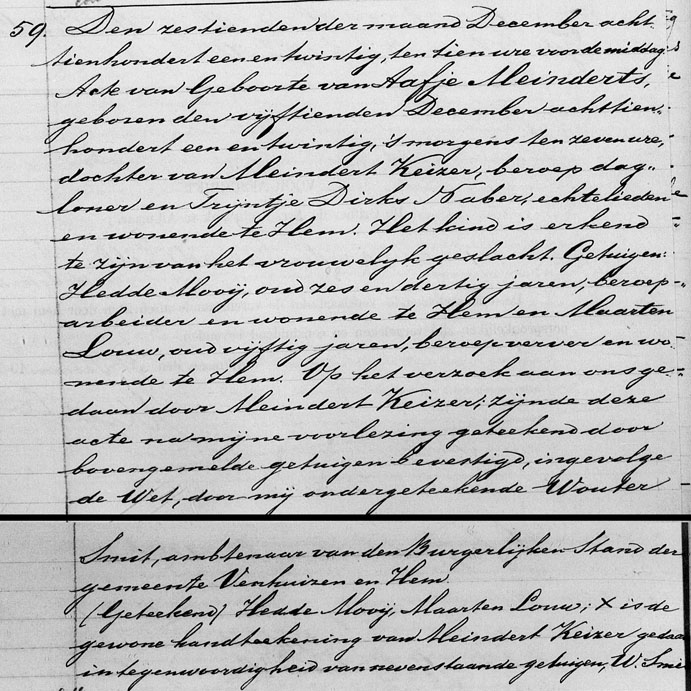 59. Den zestienden der maand December acht-
tienhondert een en twintig, ten tien ure voordemiddag
Acte van Geboorte van Aafje Meinderts,
geboren den vyftienden December achttien-
hondert een en twintig, 's morgens ten zeven ure,
dochter van Meindert Keizer, beroep dag-
loner en Trijntje Dirks Naber, echtelieden
en wonende te Hem. Het kind is erkend
te zijn van het vrouwelyk geslacht. Getuigen:
Hedde Mooij, oud zes en dertig jaren, beroep
arbeider en wonende te Hem en Maarten
Louw, oud vijftig jaren, beroep verver en wo-
nende te Hem. Op het verzoek aan ons ge-
daan door Meindert Keizer; zijnde deze
acte na mijne voorlezing geteekend door
bovengemelde getuigen bevestigd, ingevolge
de Wet, door mij ondergeteekende Wouter
Smit, ambtenaar van den Burgerlijken Stand der
gemeente Venhuizen en Hem
(Geteekend) Hedde Mooij, Maarten Louw; X is de
gewone handteekening van Meindert Keizer gedaan
in tegenwoordigheid van nevenstaande getuigen, W. Smit